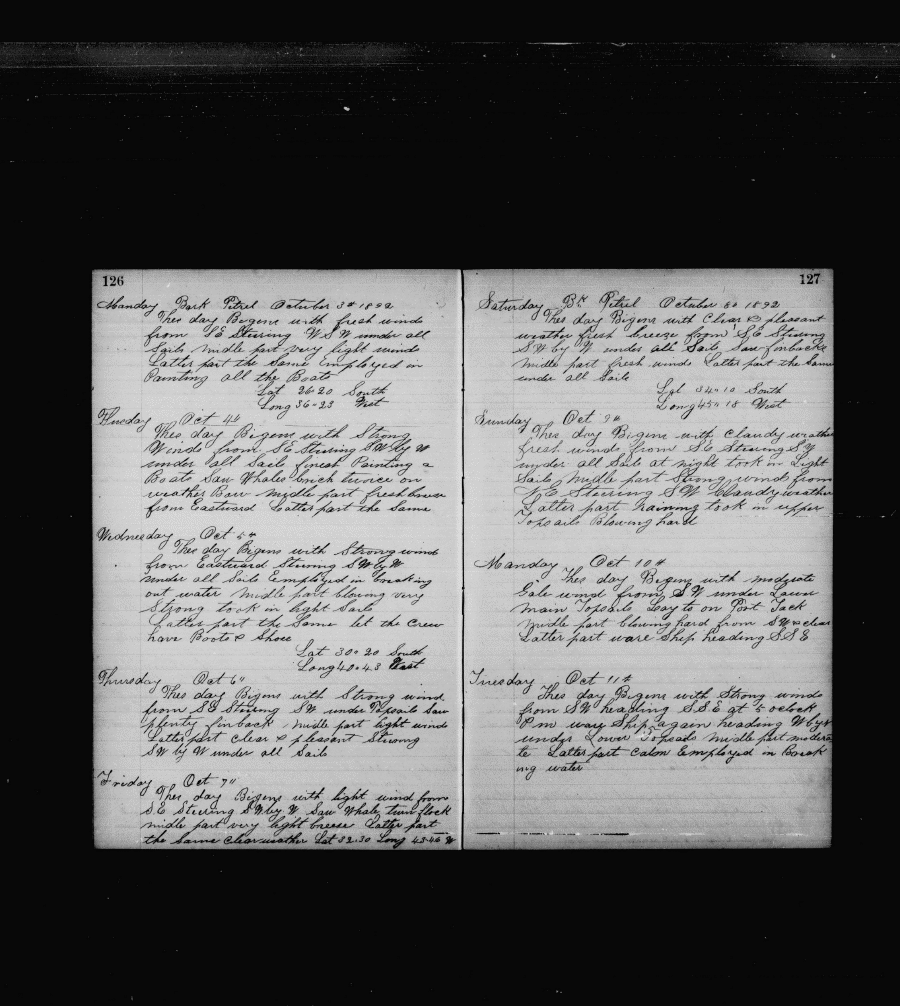 126
Manday Bark Petrel October 3th 1892
Thes day Bigens with fresh wind
from SE Steering WSW under all
Sails midle part very light wind
Latter part the Same Employed in
Painting all the Boats
Lat 26-20 South
Long 36-23 West
Tuesday Oct 4th
Thes day Bigens with Strong
Winds from SE Steering SW by W
under all Sails finest Painting a
Boats Saw Whales twice on
weather Bow midle part fresh breeze
from Eastward Latter part the Same
Wednesday Oct 5th
Thes day Bigens with Strong wind
from Eastward Steering SW by W
under all Sails Employed in breaking
out water midle part blowing very
Strong took in light Sails
Latter part the Same let the Crew
have Boots & Shoes
Lat 30-20 South
Long 40-43 West
Thursday Oct 6"
Thes day Bigens with Strong wind
from SE Steering SW under Topsails Saw
plenty finback midle part light winds
Latter part Clear & pleasant Steering
SW by W under all Sails
Friday Oct 7"
Thes day Bigens with light wind from
SE Steering SW by W Saw Whale turn flock
midle part very light breeze Latter part
the Same Clear weather Lat 32-30 Long 43-46 W
127
Saturday Bk Petrel October 8th 1892
Thes day Bigens with Clear & pleasant
weather fresh breeze from SE Steering
SW by W under all Sails Saw finbacks
midle part fresh winds Latter part the Same
under all Sails
Lat 34-10 South
Long 45-18 West
Sunday Oct 9th
Thes day Bigens with Claudy weather
fresh winds from SE Steering SW
under all Sails at night took in Light
Sails midle part Strong wind from
SE Steering SW Claudy weather
Latter part raining took in upper
Topsails Blowing hard
Manday Oct 10th
Thes day Bigens with modrate
Gale wind from SW under Lower
main Topsails Lay to on Port Tack
midle part blowing hard from SW & clear
Latter part ware Ship heading SSE
Tuesday Oct 11th
Thes day Bigens with Strong winds
from SW heading SSE at 5 oclock
Pm ware Ship again heading W by N
under Lower Topsails midle part modera
te Latter part Calm Employed in Break
ing water